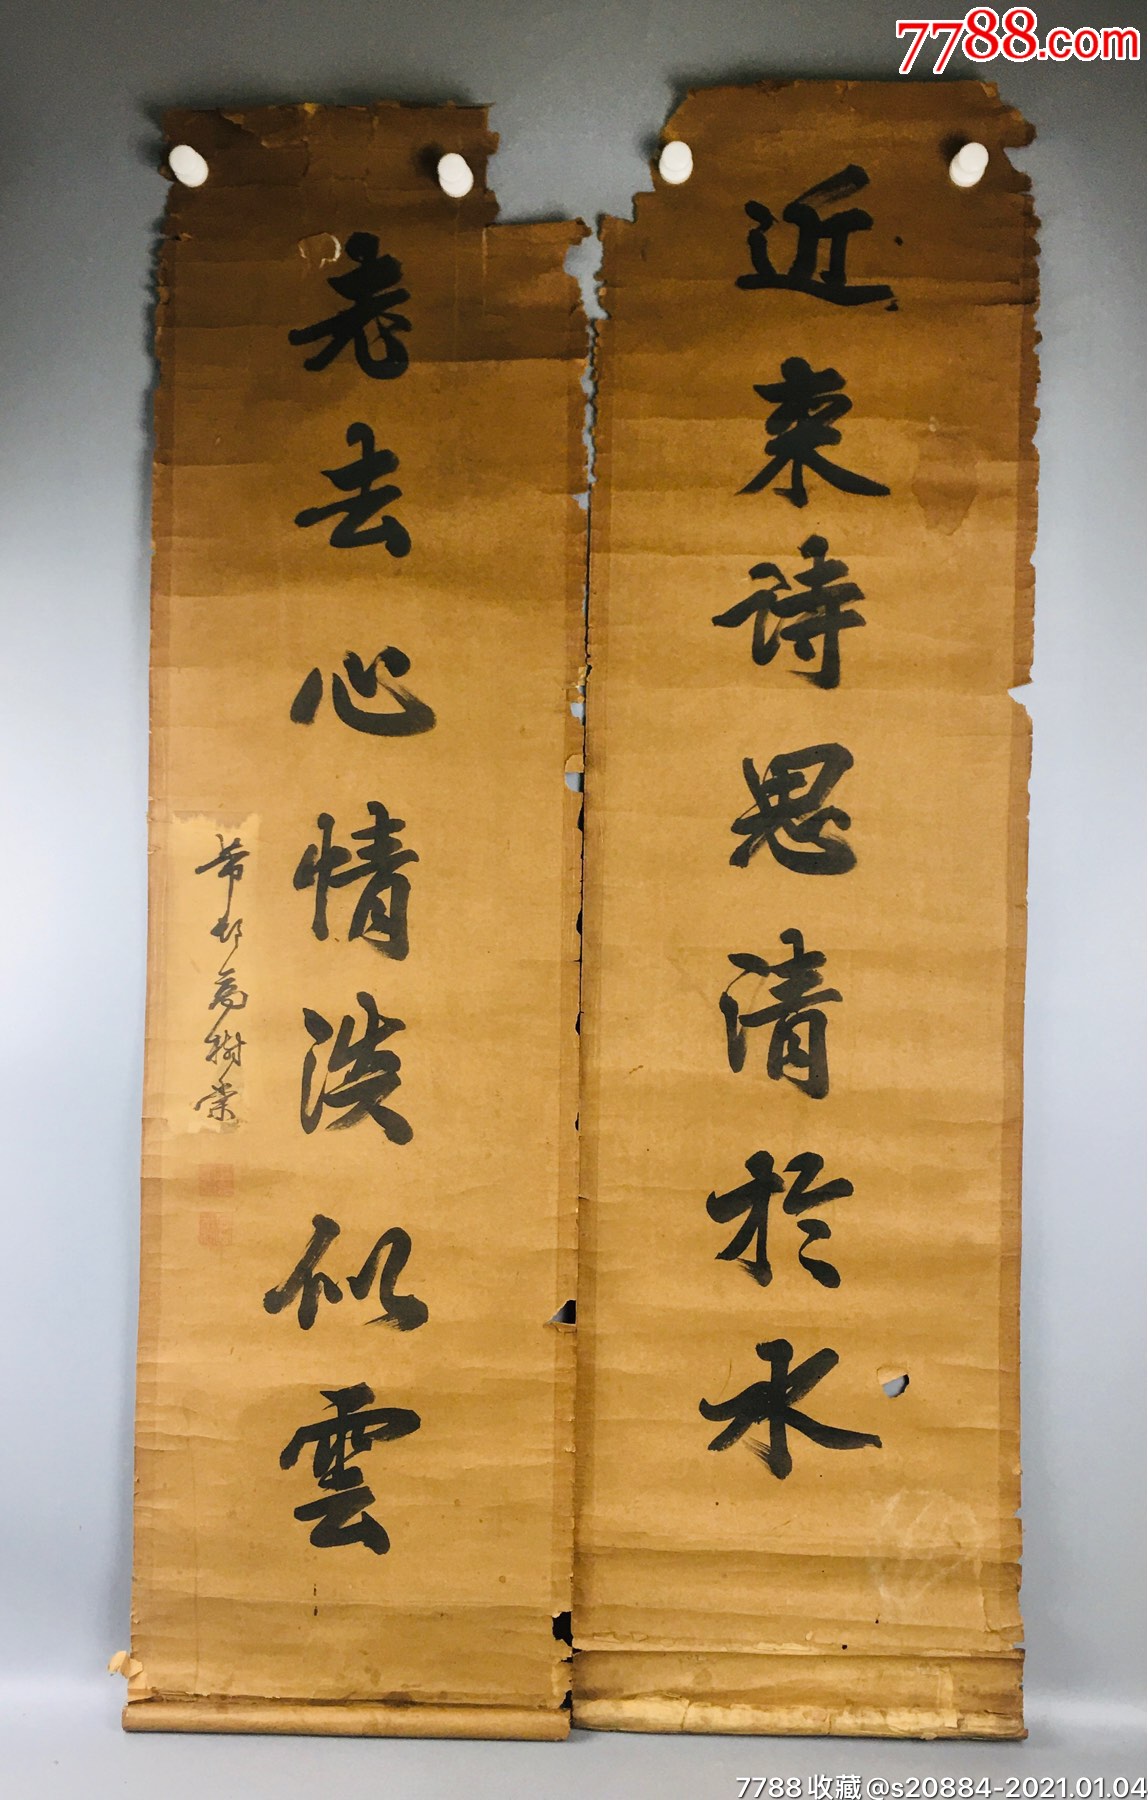 7788.com
近来诗思清於水
老去心情淡似雲
芾村高樹棠
7788收藏@s20884-2021.01.04